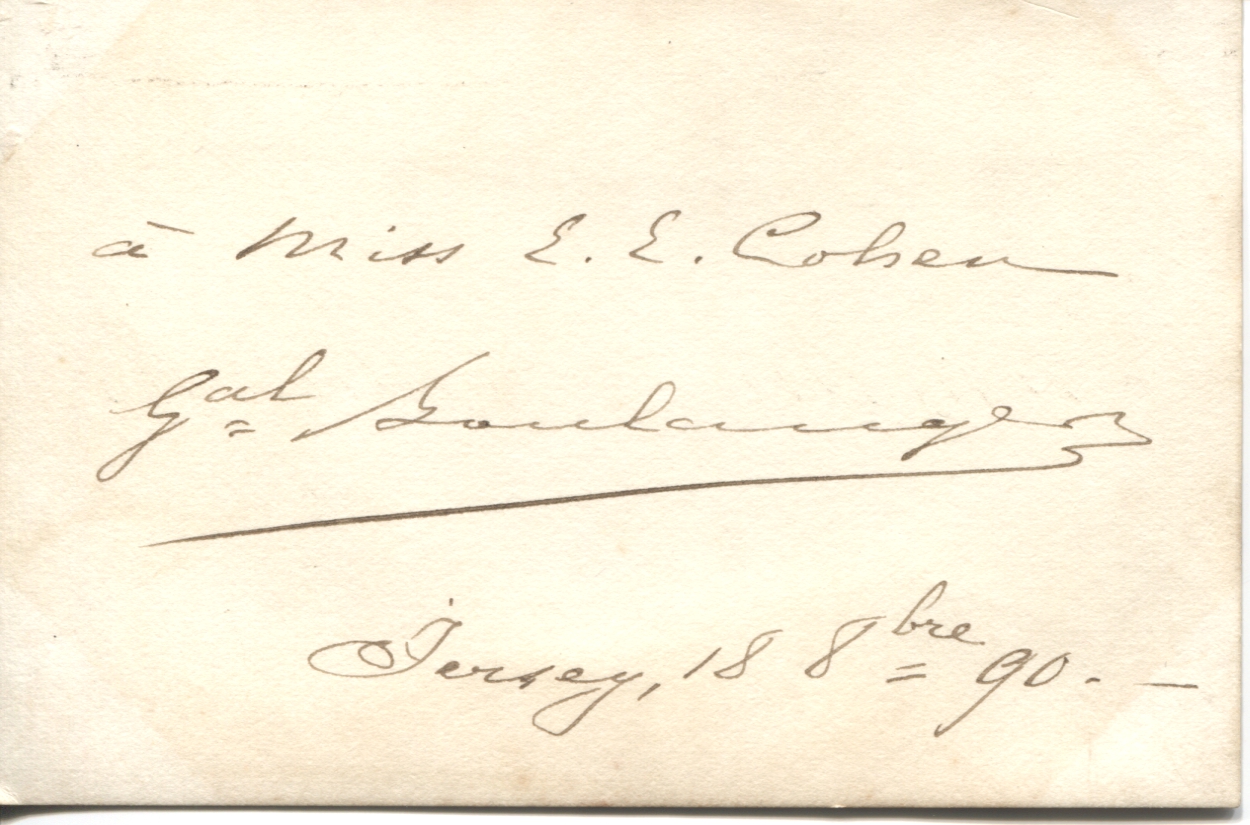 à Miss E. E. Cohen
Gal Boulanger
Jersey, 18 8bre 90. —